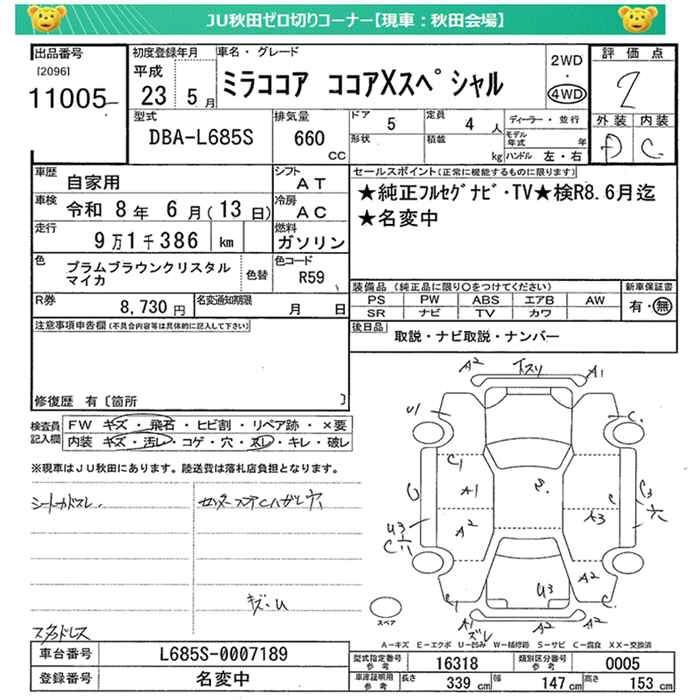 JU秋田ゼロ切りコーナー【現車：秋田会場】
出品番号
[2096]
11005
初度登録年月
平成
23 5月
車名・グレード
ミラココア ココアXスペシャル
2WD
・
4WD
評価点
2
外装 内装
D C
型式
DBA-L685S
排気量
660
CC
ドア 5
定員 4 人
形状
積載
kg
ディーラー・並行
モデル年式 年
ハンドル 左・右
車歴 自家用
シフト AT
車検 令和 8年 6月(13日)
冷房 AC
走行 9万1千386 km
燃料 ガソリン
色 プラムブラウンクリスタル
マイカ
色替
色コード R59
R券 8,730円
名変通知期限 月 日
セールスポイント(正常に機能するものに限ります)
★純正フルセグナビ・TV★検R8.6月迄
★名変中
装備品 (純正品に限り○をつけてください)
PS PW ABS エアB AW
SR ナビ TV カワ
新車保証書
有・無
後日品
取説・ナビ取説・ナンバー
注意事項申告欄(不具合内容等は具体的に記入して下さい)
修復歴 有〔箇所 〕
検査員記入欄
FW キズ・飛石・ヒビ割・リペア跡・×要
内装 キズ・汚レ・コゲ・穴・スレ・キレ・破レ
※現車はJU秋田にあります。陸送費は落札店負担となります。
シートカドスレ
キズ・U
スタッドレス
A2
A1
U
C
C1
A1
A2
S
C
U3
C
A3
C3
穴
A2
U3
C
A1
A2
ズレ
スペア
A−キズ E−エクボ U−凹み W−補修跡 S−サビ C−腐食 XX−交換済
車台番号 L685S-0007189
登録番号 名変中
型式指定番号
参考
16318
類別区分番号
参考
0005
車庫証明用
参考
長さ 339 cm
幅 147 cm
高さ 153 cm